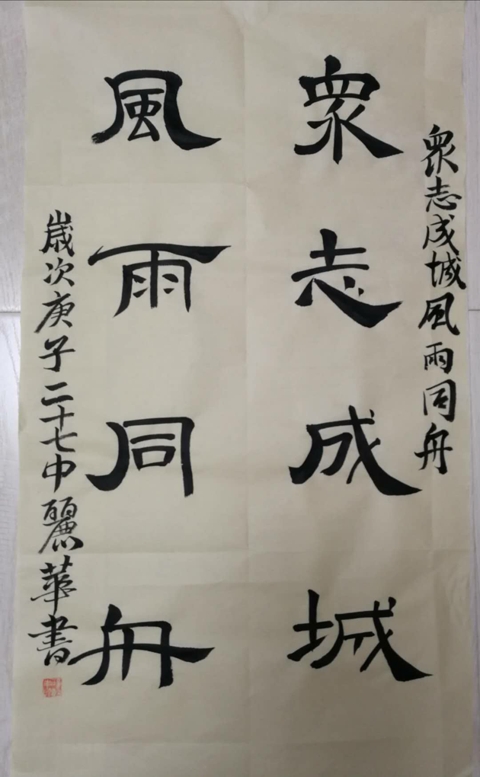 眾志成城風雨同舟
眾志成城
風雨同舟
歲次庚子二十七中麗華書